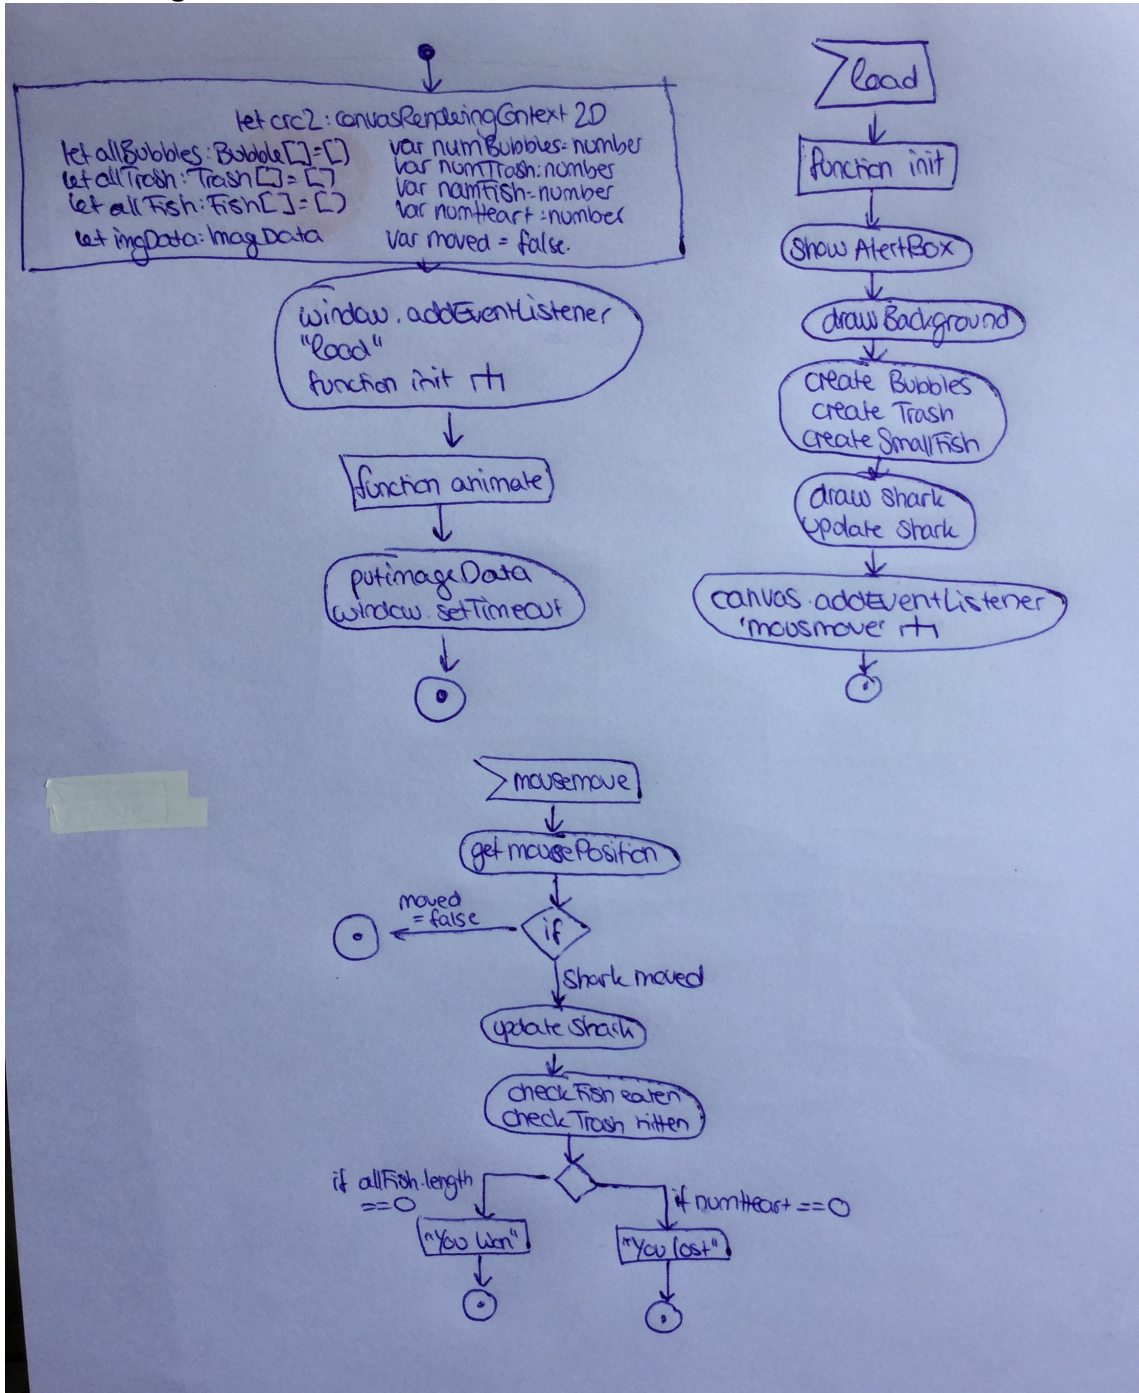 let crc2: canvasRenderingContext 2D
let allBubbles: Bubble[]=[]
let allTrash: Trash[]=[]
let all Fish: Fish[]=[]
let imgData: ImagData
var numBubbles=number
var numTrash:number
var namFish=number
var numHeart=number
var moved = false.
window.addEventListener
"load"
function init
function animate
putimageData
window.setTimeout
load
function init
show AlertBox
draw Background
create Bubbles
create Trash
create SmallFish
draw shark
update shark
canvas.addEventListener
'mousmove'
mousemove
get mousePosition
if
moved
=false
Shark moved
update Shark
check Fish eaten
check Trash hitten
if allFish.length
==0
if numHeart ==0
"You Won"
"You lost"